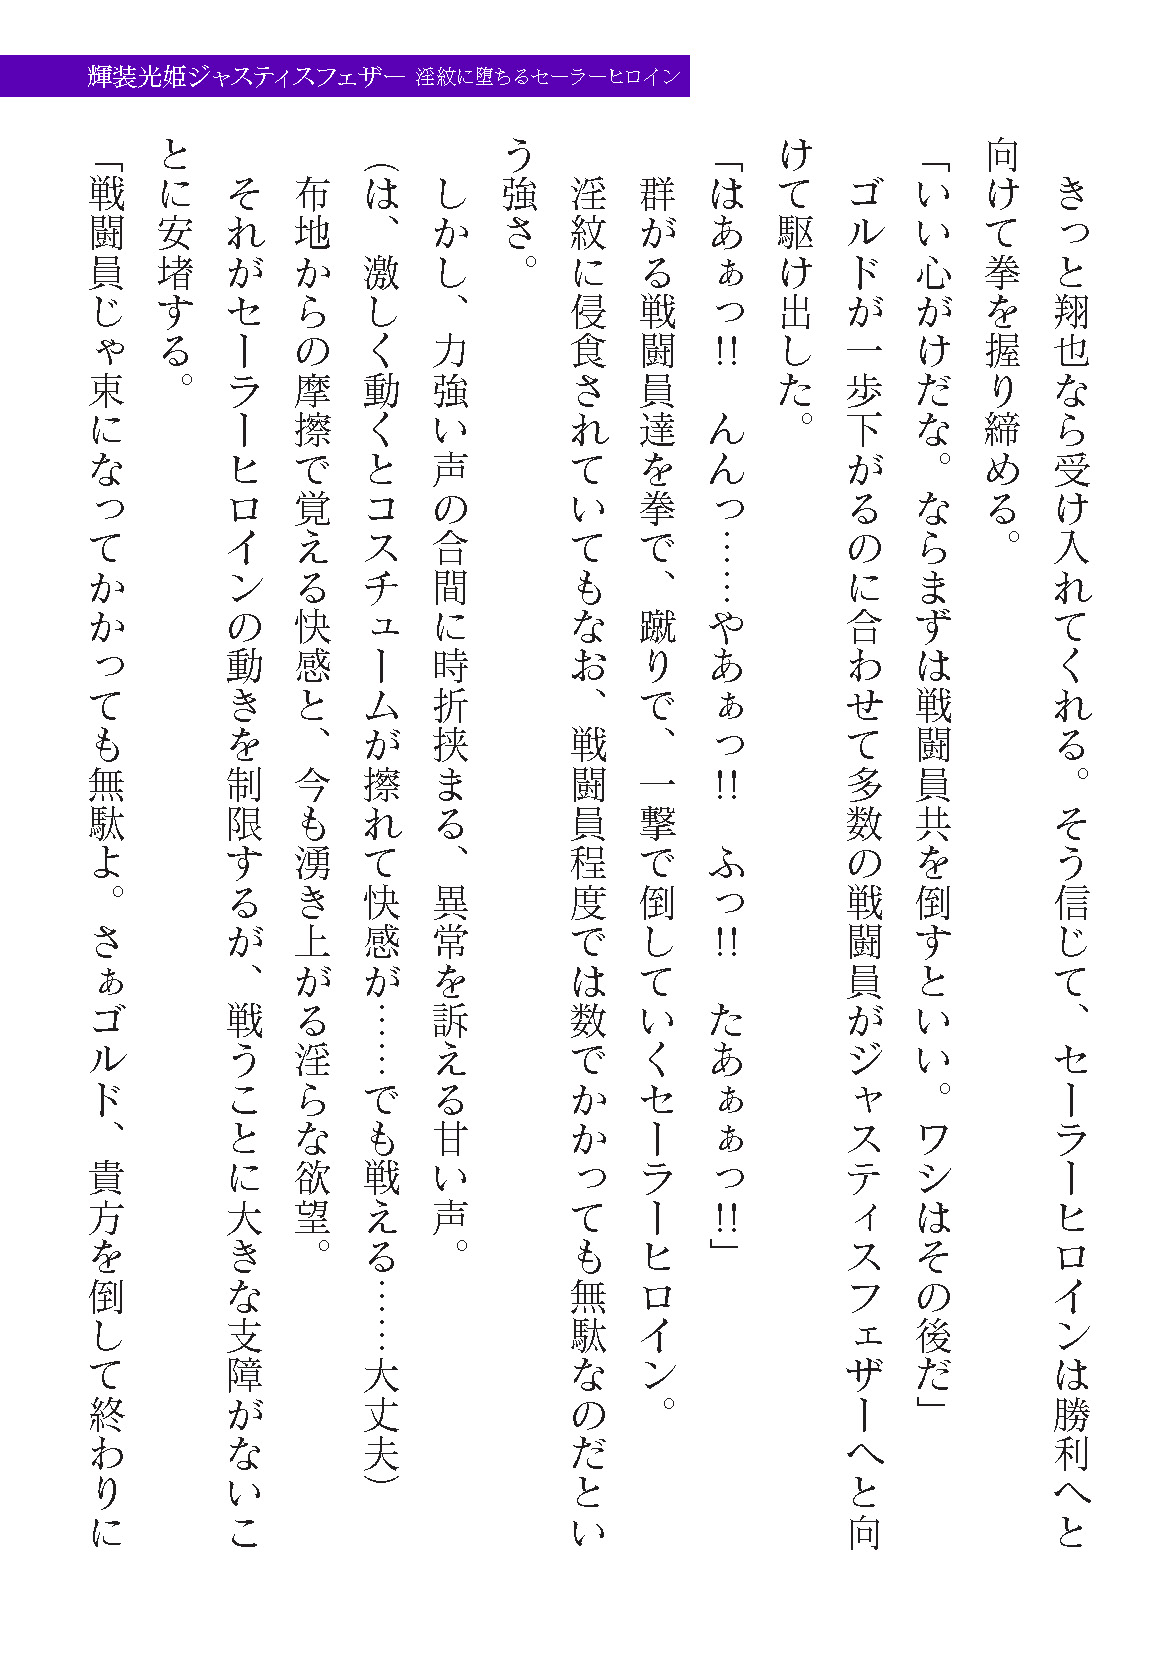 輝装光姫ジャスティスフェザー 淫紋に堕ちるセーラーヒロイン
　きっと翔也なら受け入れてくれる。そう信じて、セーラーヒロインは勝利へと
向けて拳を握り締める。
「いい心がけだな。ならまずは戦闘員共を倒すといい。ワシはその後だ」
　ゴルドが一歩下がるのに合わせて多数の戦闘員がジャスティスフェザーへと向
けて駆け出した。
「はあぁっ!!　んんっ……やあぁっ!!　ふっ!!　たあぁぁっ!!」
　群がる戦闘員達を拳で、蹴りで、一撃で倒していくセーラーヒロイン。
　淫紋に侵食されていてもなお、戦闘員程度では数でかかっても無駄なのだとい
う強さ。
　しかし、力強い声の合間に時折挟まる、異常を訴える甘い声。
（は、激しく動くとコスチュームが擦れて快感が……でも戦える……大丈夫）
　布地からの摩擦で覚える快感と、今も湧き上がる淫らな欲望。
　それがセーラーヒロインの動きを制限するが、戦うことに大きな支障がないこ
とに安堵する。
「戦闘員じゃ束になってかかっても無駄よ。さぁゴルド、貴方を倒して終わりに